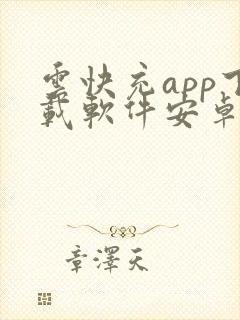 雲快充app下
載軟件安卓
章澤天